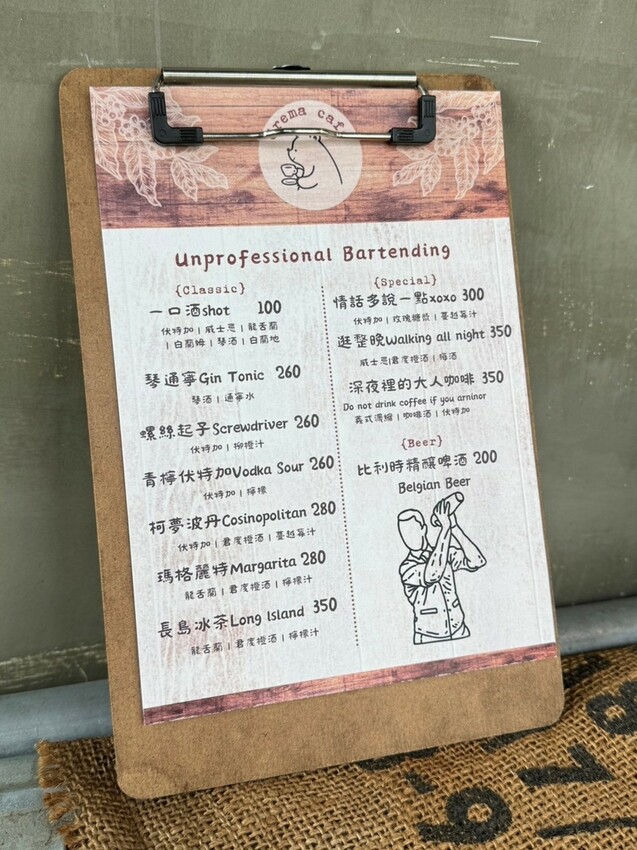 rema caf
Unprofessional Bartending
{Classic}
一口酒shot 100
伏特加 | 威士忌 | 龍舌蘭
| 白蘭姆 | 琴酒 | 白蘭地
琴通寧Gin Tonic 260
琴酒 | 通寧水
螺絲起子Screwdriver 260
伏特加 | 柳橙汁
青檸伏特加Vodka Sour 260
伏特加 | 檸檬
柯夢波丹Cosinopolitan 280
伏特加 | 君度橙酒 | 蔓越莓汁
瑪格麗特Margarita 280
龍舌蘭 | 君度橙酒 | 檸檬汁
長島冰茶Long Island 350
龍舌蘭 | 君度橙酒 | 檸檬汁
{Special}
情話多說一點xoxo 300
伏特加 | 玫瑰糖漿 | 蔓越莓汁
逛整晚Walking all night 350
威士忌|君度橙酒 | 梅酒
深夜裡的大人咖啡 350
Do not drink coffee if you arninor
義式濃縮 | 咖啡酒 | 伏特加
{Beer}
比利時精釀啤酒 200
Belgian Beer